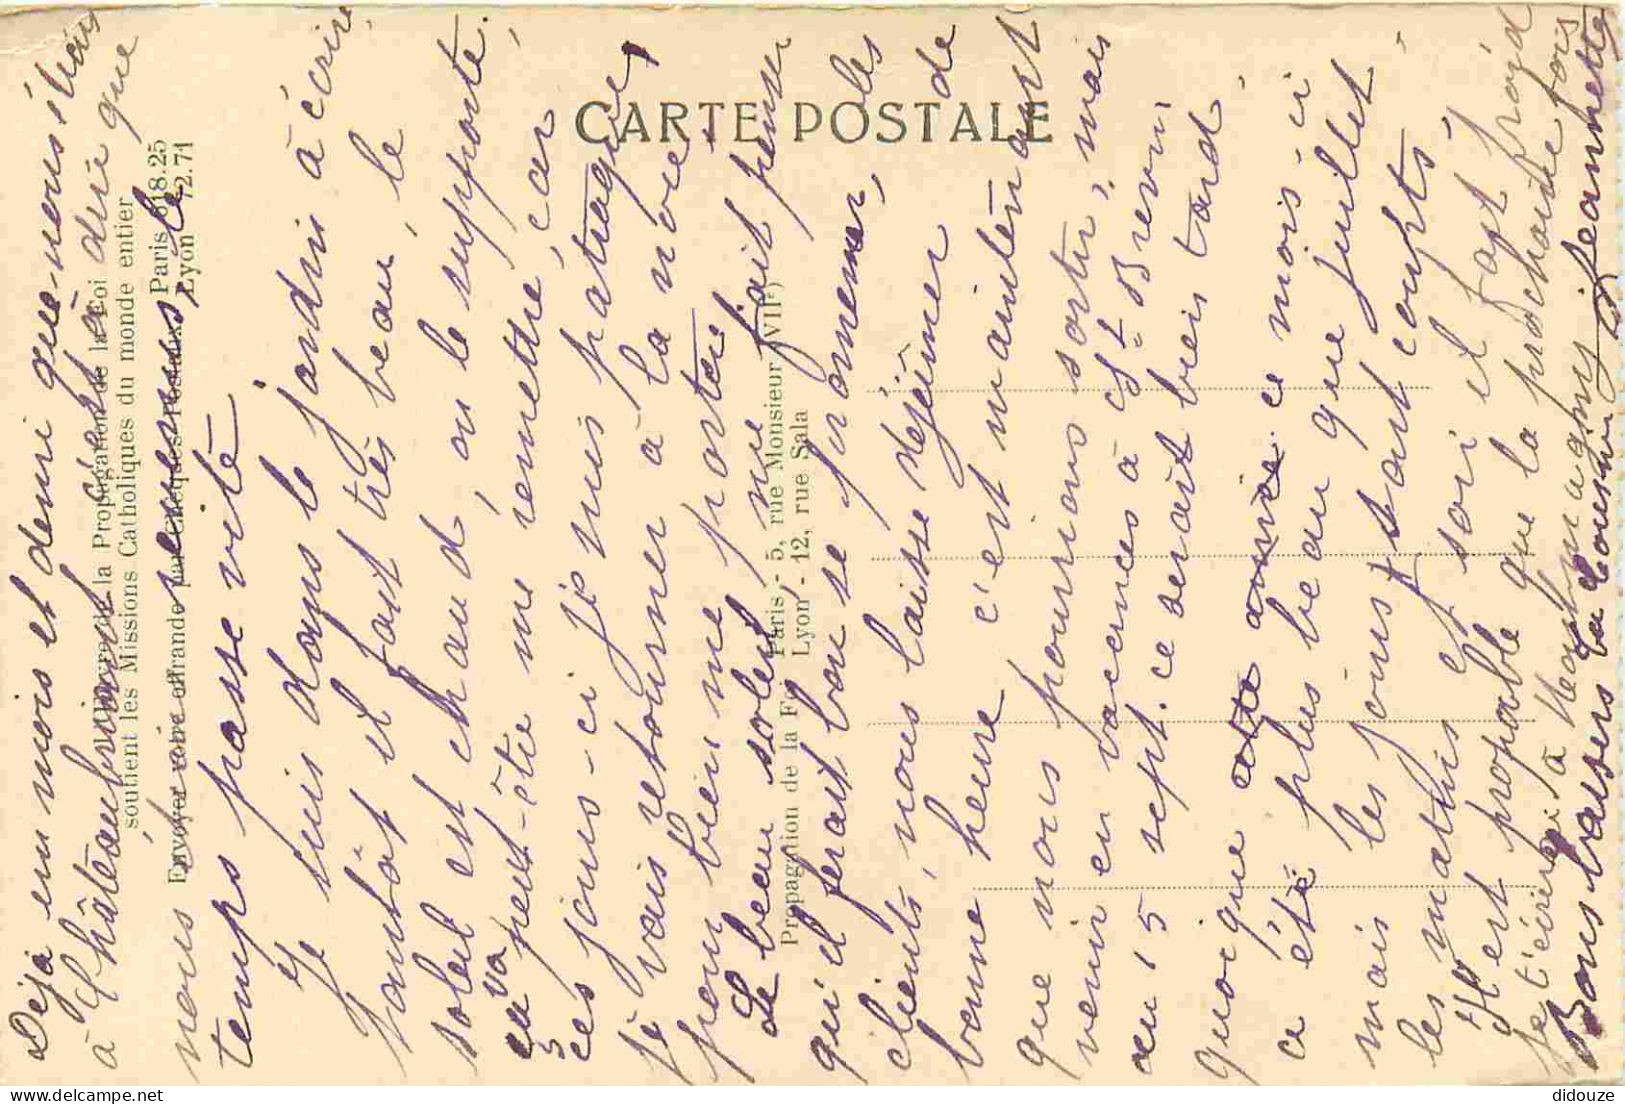 CARTE POSTALE
L'Œuvre de la Propagation de la Foi
soutient les Missions Catholiques du monde entier
Envoyer votre offrande par Chèques Postaux : Paris 618.25
Lyon 72.71
Propagation de la Foi
Paris - 5, rue Monsieur (VIIe)
Lyon - 12, rue Sala
Déja un mois et demi que nous étions
à Châteaubriant c'est à dire que
nous sommes le
temps passe vite
Je suis dans le jardin à écrire
tantôt il fait très beau, le
soleil est chaud, on le supporte.
ça va peut-être me remettre, car
ces jours-ci je suis patraque,
je vais retourner à la noué
pour bien me porter.
Le beau soleil me fait penser
qu'il ferait bon se promener, les
clients, nous laisse déjeuner de
bonne heure c'est maintenant
que nous pourrions sortir, mais
venir en vacances à St Brevin
au 15 sept. ce serait bien tard.
quoique ce mois-ci
a été plus beau que juillet
mais les jours sont courts
les matins et soir il fait froid
Il est probable que la prochaine fois
je t'écrirai à
Bons baisers Ta Cousine Jeannette
didouze